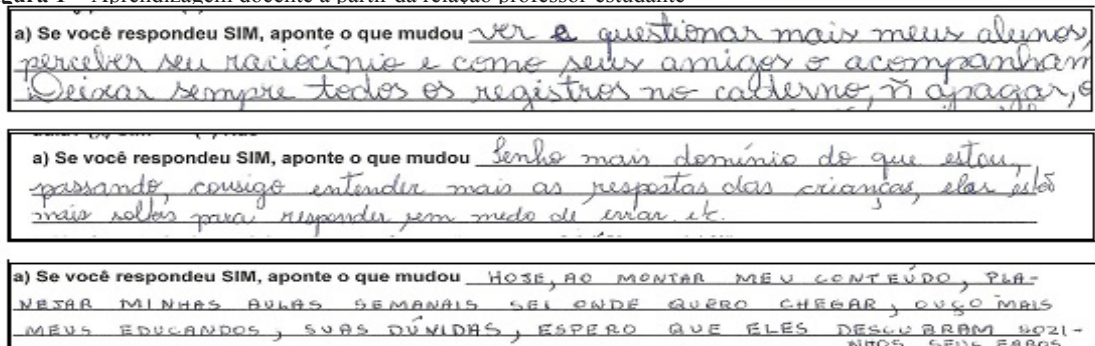 gura 1 – Aprendizagem docente a partir da relação professor-estudante
a) Se você respondeu SIM, aponte o que mudou ver e questionar mais meus alunos,
perceber seu raciocínio e como seus amigos o acompanham
Deixar sempre todos os registros no caderno, ñ apagar, o
a) Se você respondeu SIM, aponte o que mudou Tenho mais domínio do que estou,
passando, consigo entender mais as respostas das crianças, elas estão
mais soltas para responder sem medo de errar etc.
a) Se você respondeu SIM, aponte o que mudou HOJE, AO MONTAR MEU CONTEÚDO, PLA-
NEJAR MINHAS AULAS SEMANAIS SEI ONDE QUERO CHEGAR, OUÇO MAIS
MEUS EDUCANDOS, SUAS DÚVIDAS, ESPERO QUE ELES DESCUBRAM SOZI-
NHOS SEUS ERROS